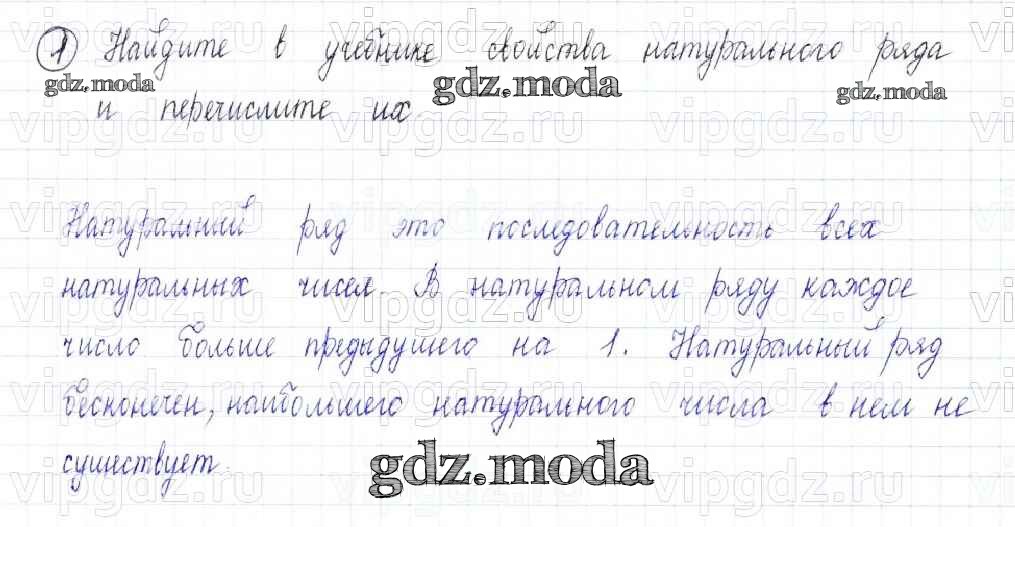 1 Найдите в учебнике свойства натурального ряда
gdz.moda gdz.moda gdz.moda
и перечислите их.
Натуральный ряд это последовательность всех
натуральных чисел. В натуральном ряду каждое
число больше предыдущего на 1. Натуральный ряд
бесконечен, наибольшего натурального числа в нем не
существует.
gdz.moda
vipgdz.ru